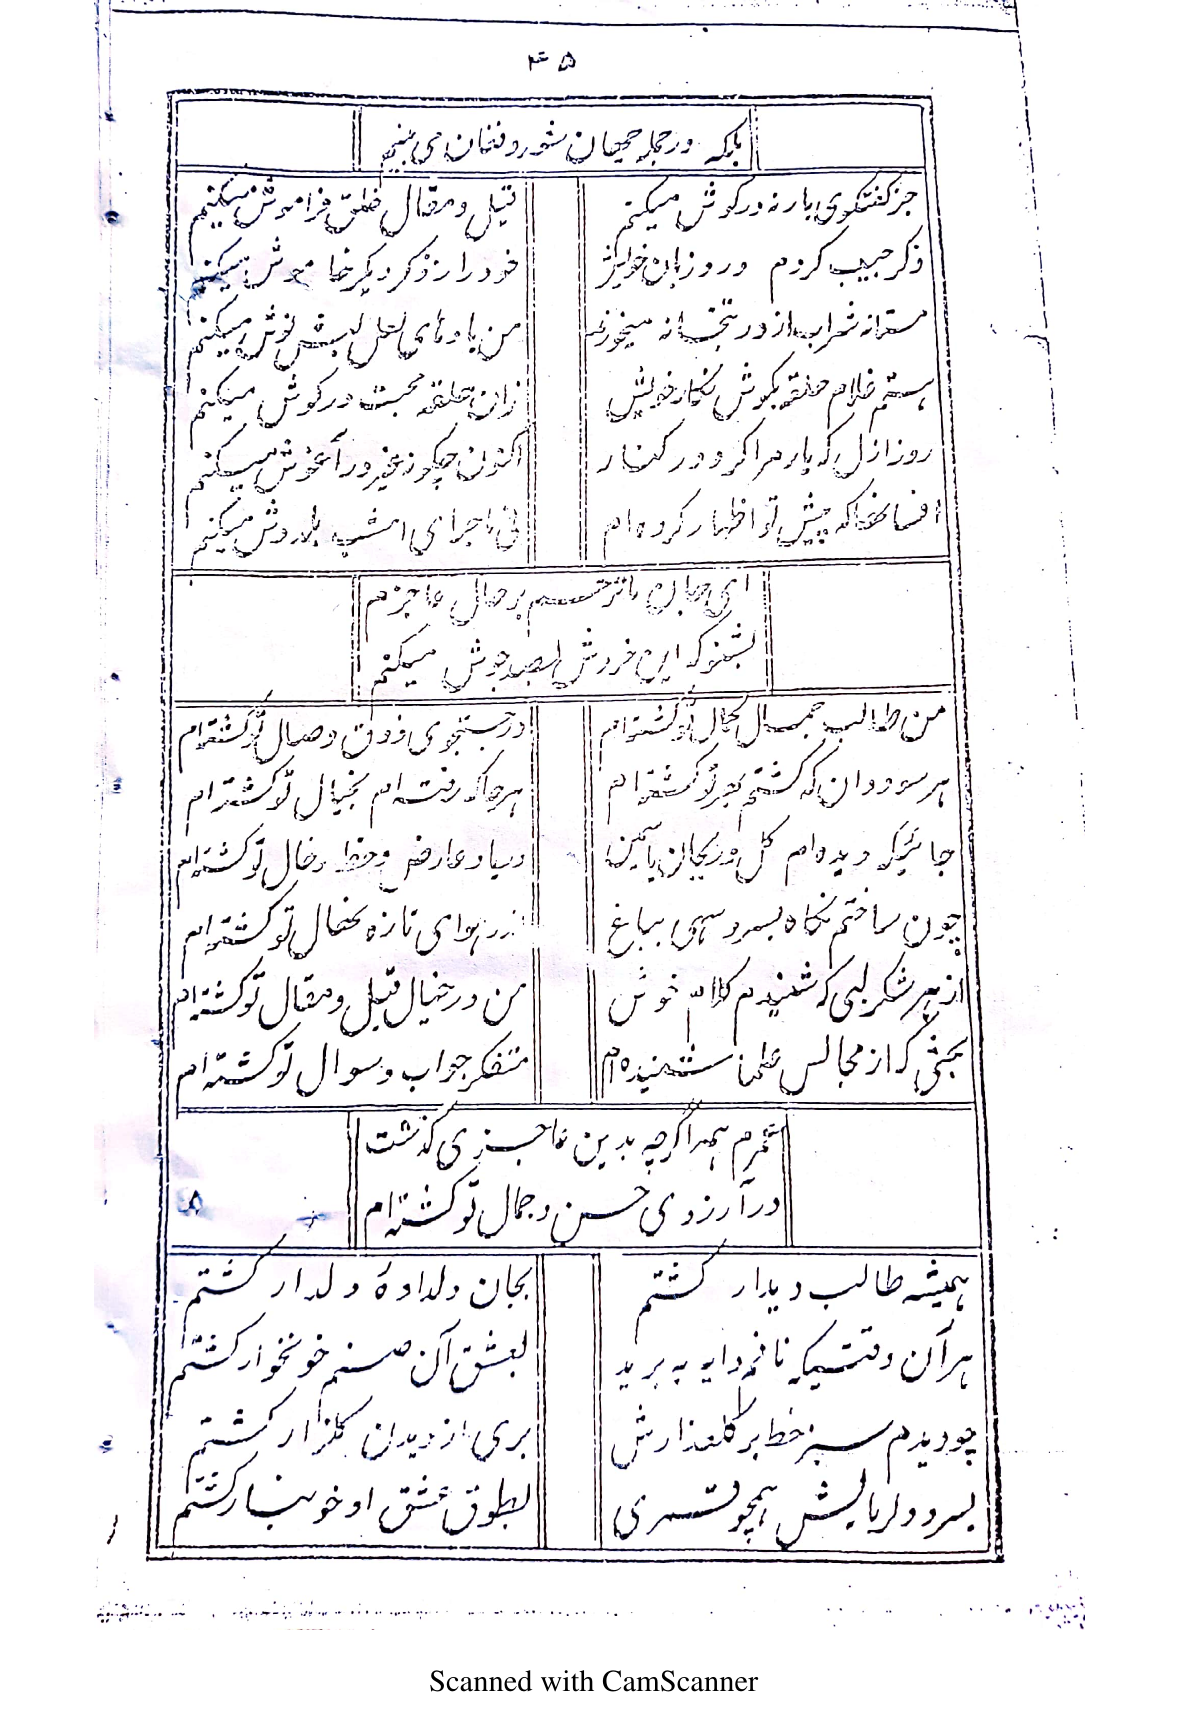 ۴۵
بلکه در جمله جهان شور و فغان می بینم
جز گفتگوی یار نه در گوش میکنم
قیل و مقال خلق فراموش میکنم
ذکر حبیب کردم ورد زبان خویش
خود را ز ذکر دیگر خاموش میکنم
مستانه شراب از در بتخانه میخورند
من باده‌های لعل لبش نوش میکنم
هستم غلام حلقه بگوش نگار خویش
زان حلقه محبت در گوش میکنم
روز ازل که یار مرا کرد در کنار
اکنون چگونه غیر در آغوش میکنم
افسانها که پیش تو اظهار کرده ام
نی ماجرای امشب یا دوش میکنم
ای جان ما ترحم بر حال عاجزم
بشنو که این خروش بصد جوش میکنم
من طالب جمال کمال تو گشته‌ام
در جستجوی ذوق وصال تو گشته‌ام
هر سو دوان که گشتم بهر تو گشته ام
هر جا که رفته ام بخیال تو گشته ام
جائیکه دیده ام گل و ریحان یاسمین
در یاد عارض و خط و خال تو گشته‌ام
چون ساختم نگاه بسرو سهی بباغ
اندر هوای تازه نهال تو گشته ام
از هر شکر لبی که شنیدم کلام خوش
من در خیال قیل و مقال تو گشته ام
بحثی که از مجالس علما شنیده ام
متفکر جواب و سوال تو گشته ام
عمرم همه اگرچه بدین عاجزی گذشت
در آرزوی حسن و جمال تو گشته ام
همیشه طالب دیدار گشتم
بجان دلدادهٔ دلدار گشتم
هر آن وقتیکه نافم دایه ببرید
بعشق آن صنم خونخوار گشتم
چو دیدم سبز خط بر گلعذارش
بری از دیدن گلزار گشتم
بسرو دلربایش همچو قمری
بطوق عشق او خونبار گشتم
Scanned with CamScanner